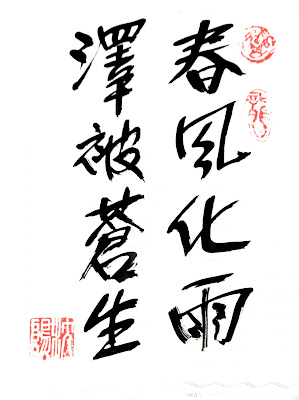 春风化雨
澤被蒼生